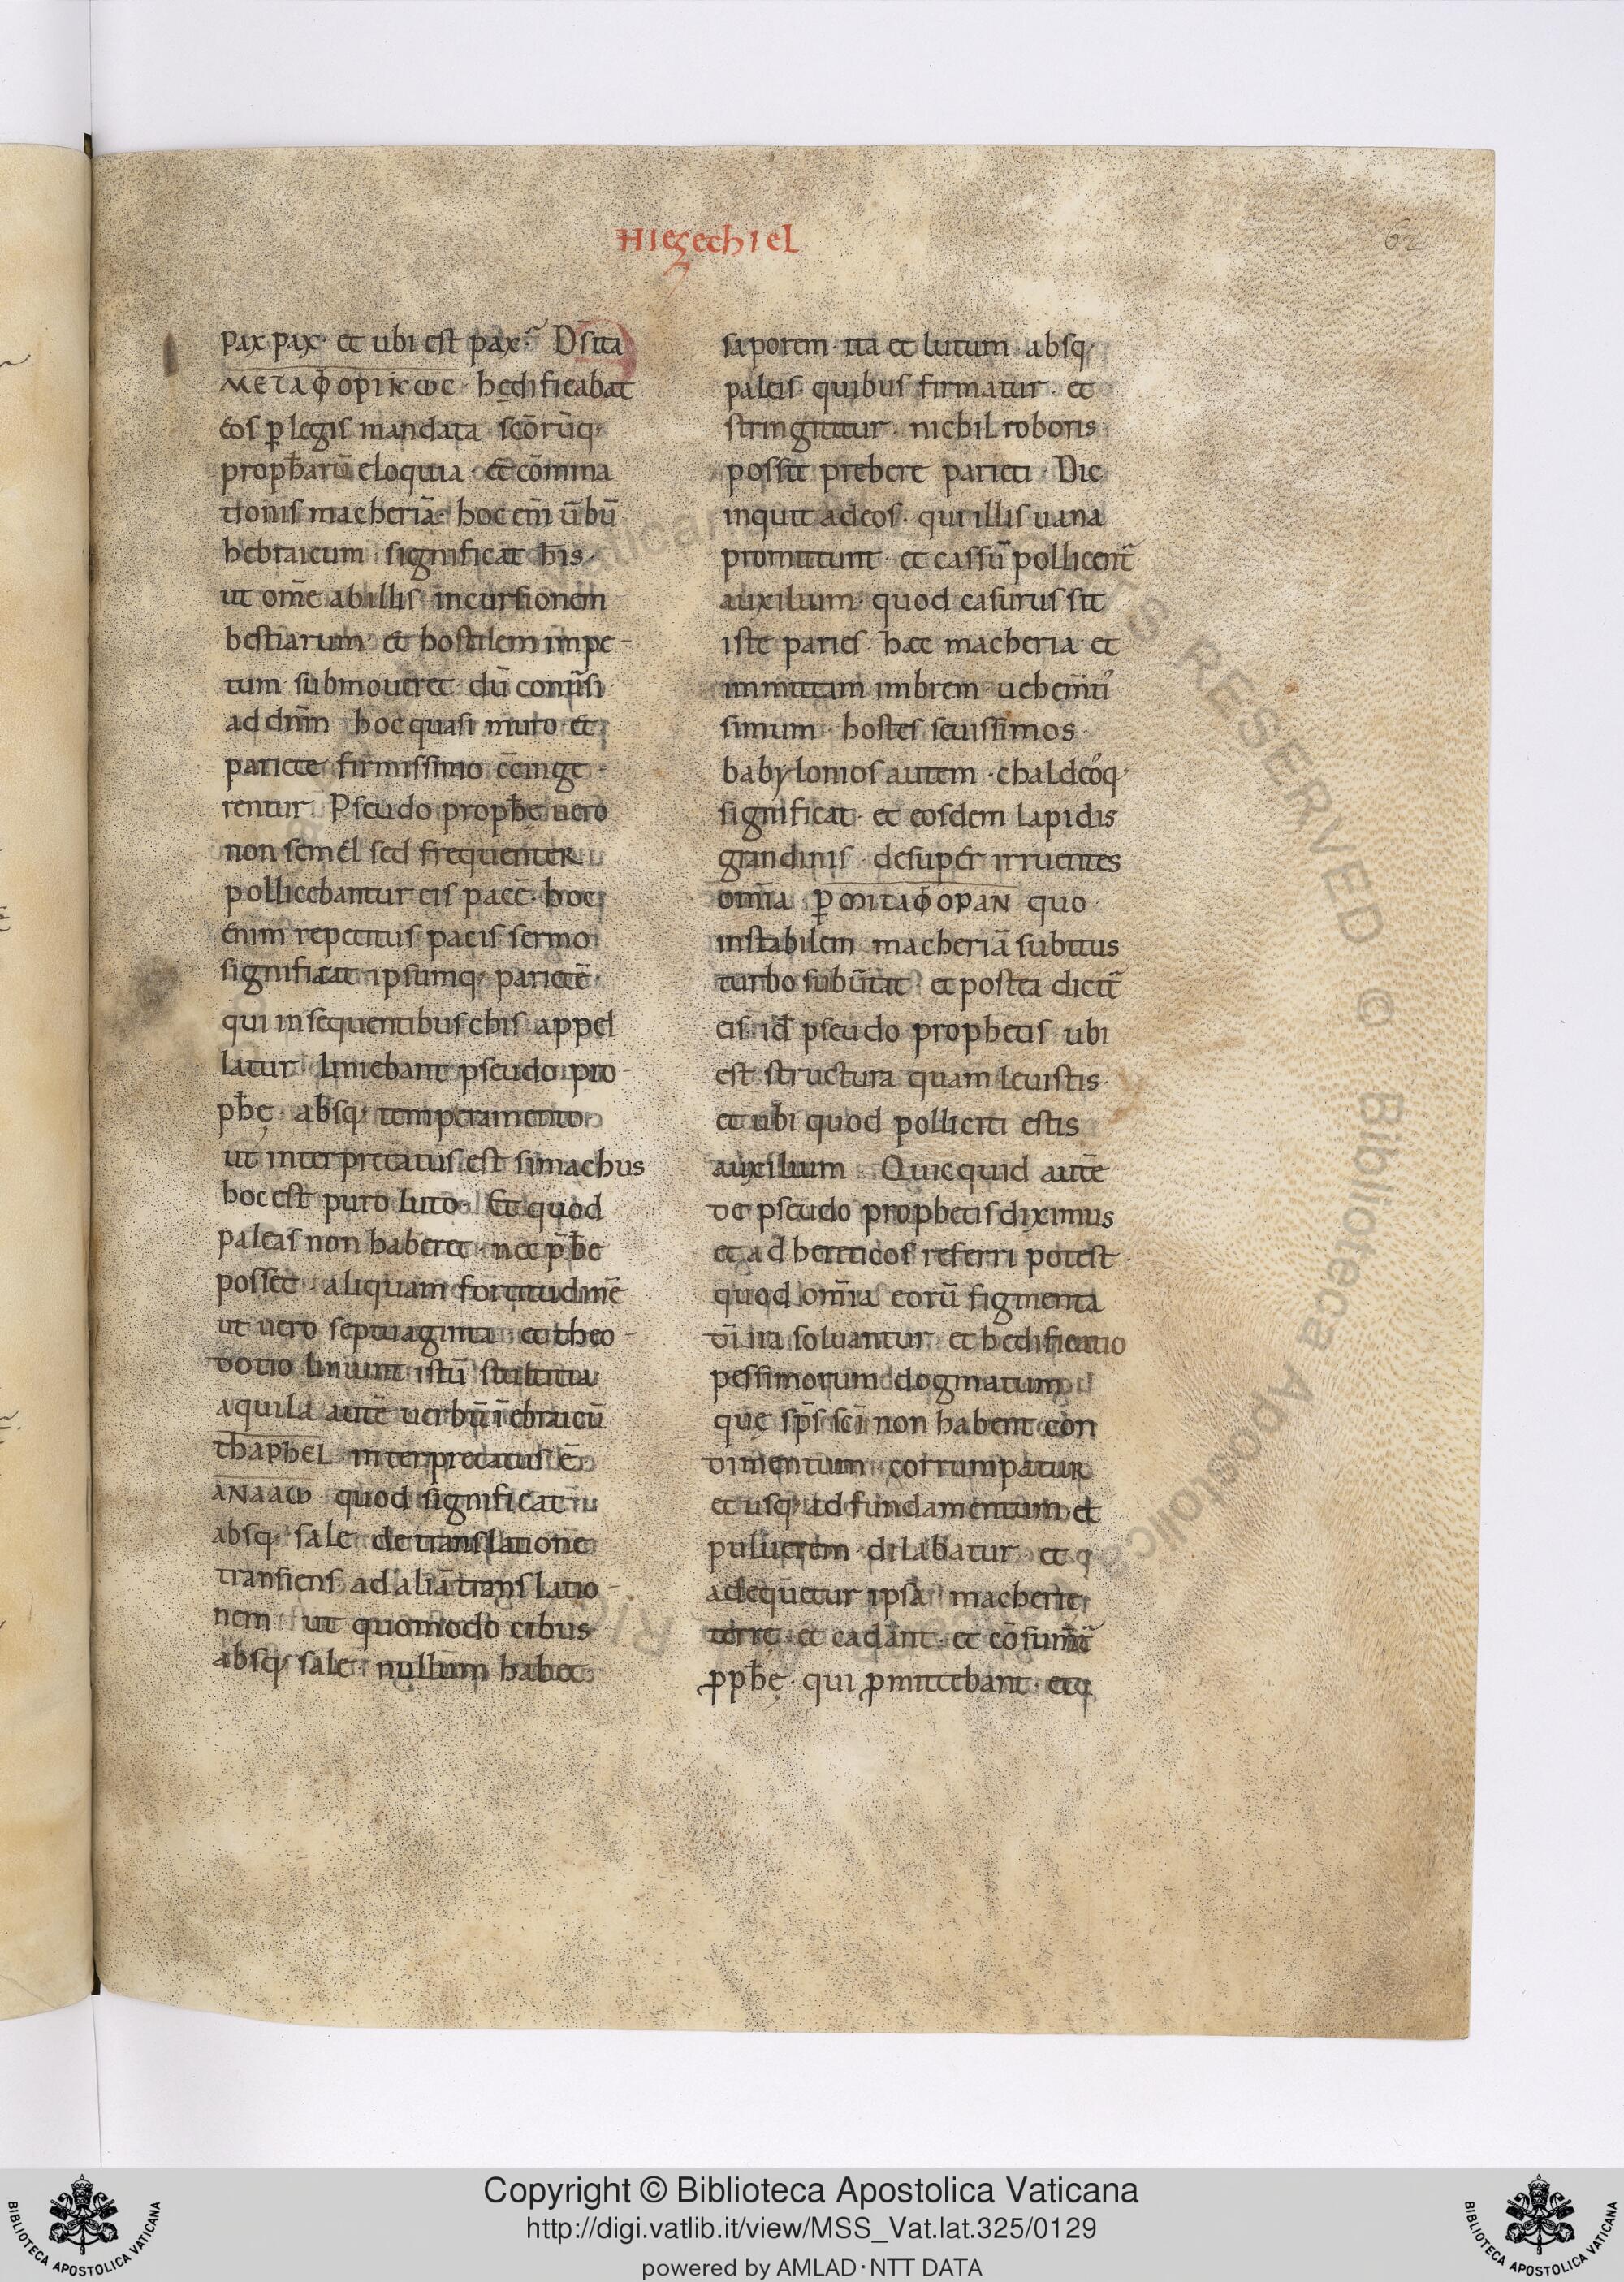 Hiezechiel
62
pax pax· et ubi est pax? Ds̄ ita
ΜΕΤΑΦΟΡΙΚωC hędificabat
eos ꝑ legis mandata scōrūq;
proph̄arū eloquia· et cōmina
tionis macheriā· hoc enī ūbū
hebraicum significat his·
ut om̄e ab illis incursionem
bestiarum et hostilem impe-
tum submoueret· dū conūsi
ad dn̄m hoc quasi muro et
pariete firmissimo
rentur· Pseudo proph̄ę uero
non semel sed frequenter
pollicebantur eis pacē· hoc
enim repetitus pacis sermo
significat ipsumq; parietē·
qui in sequentibus chis appel
latur· liniebant pseudo pro-
ph̄ę· absq; temperamento
ut interpretatus est simachus
hoc est puro luto· Et quod
paleas non haberet· nec p̄b̄e
posset aliquam fortitudinē
ut uero septuaginta et theo-
dotio liniunt istū stultitia
aquila autē uerbū ī ebraicū
thaphel interpretatus ē
ΑΝΑΛω quod significat
absq; sale de translatione
transiens ad aliā translatio-
nem ut quomodo cibus
absq; sale nullum habet
saporem· ita et lutum absq;
paleis· quibus firmatur· et
stringitur· nichil roboris
possit prebere parieti· Dic
inquit ad eos· qui illis uana
promittunt· et cassū pollicent̄
auxilium· quod casurus sit
iste paries· hæc macheria et
inmittam imbrem uehem̄ti
simum· hostes seuissimos·
babylonios autem· chaldeoq·
significat· et eosdem lapidis
grandinis· desuper irruentes
om̄ia ꝑ ΜΤΑΦΟΡΑΝ quo
instabilem macheriā subitus
turbo subūtat· et postea dicit̄
eis· id̄ pseudo prophetis ubi
est structura quam leuistis·
et ubi quod polliciti estis
auxilium· Quicquid autē
de pseudo prophetis diximus
et ad hereticos referri potest·
quod om̄ia eorū figmenta
dī ira soluantur· et hedificatio
pessimorum dogmatum
quę sp̄s scī non habent con
dimentum corrumpatur
et usq; ad fundamentum et
puluerem dilabatur· et q
adequetur ipsa macherie
terre· et cadant· et cōsum̄t̄
ꝓph̄ę· qui ꝓmittebant· et q
Copyright © Biblioteca Apostolica Vaticana
http://digi.vatlib.it/view/MSS_Vat.lat.325/0129
powered by AMLAD·NTT DATA
BIBLIOTECA APOSTOLICA VATICANA
BIBLIOTECA APOSTOLICA VATICANA